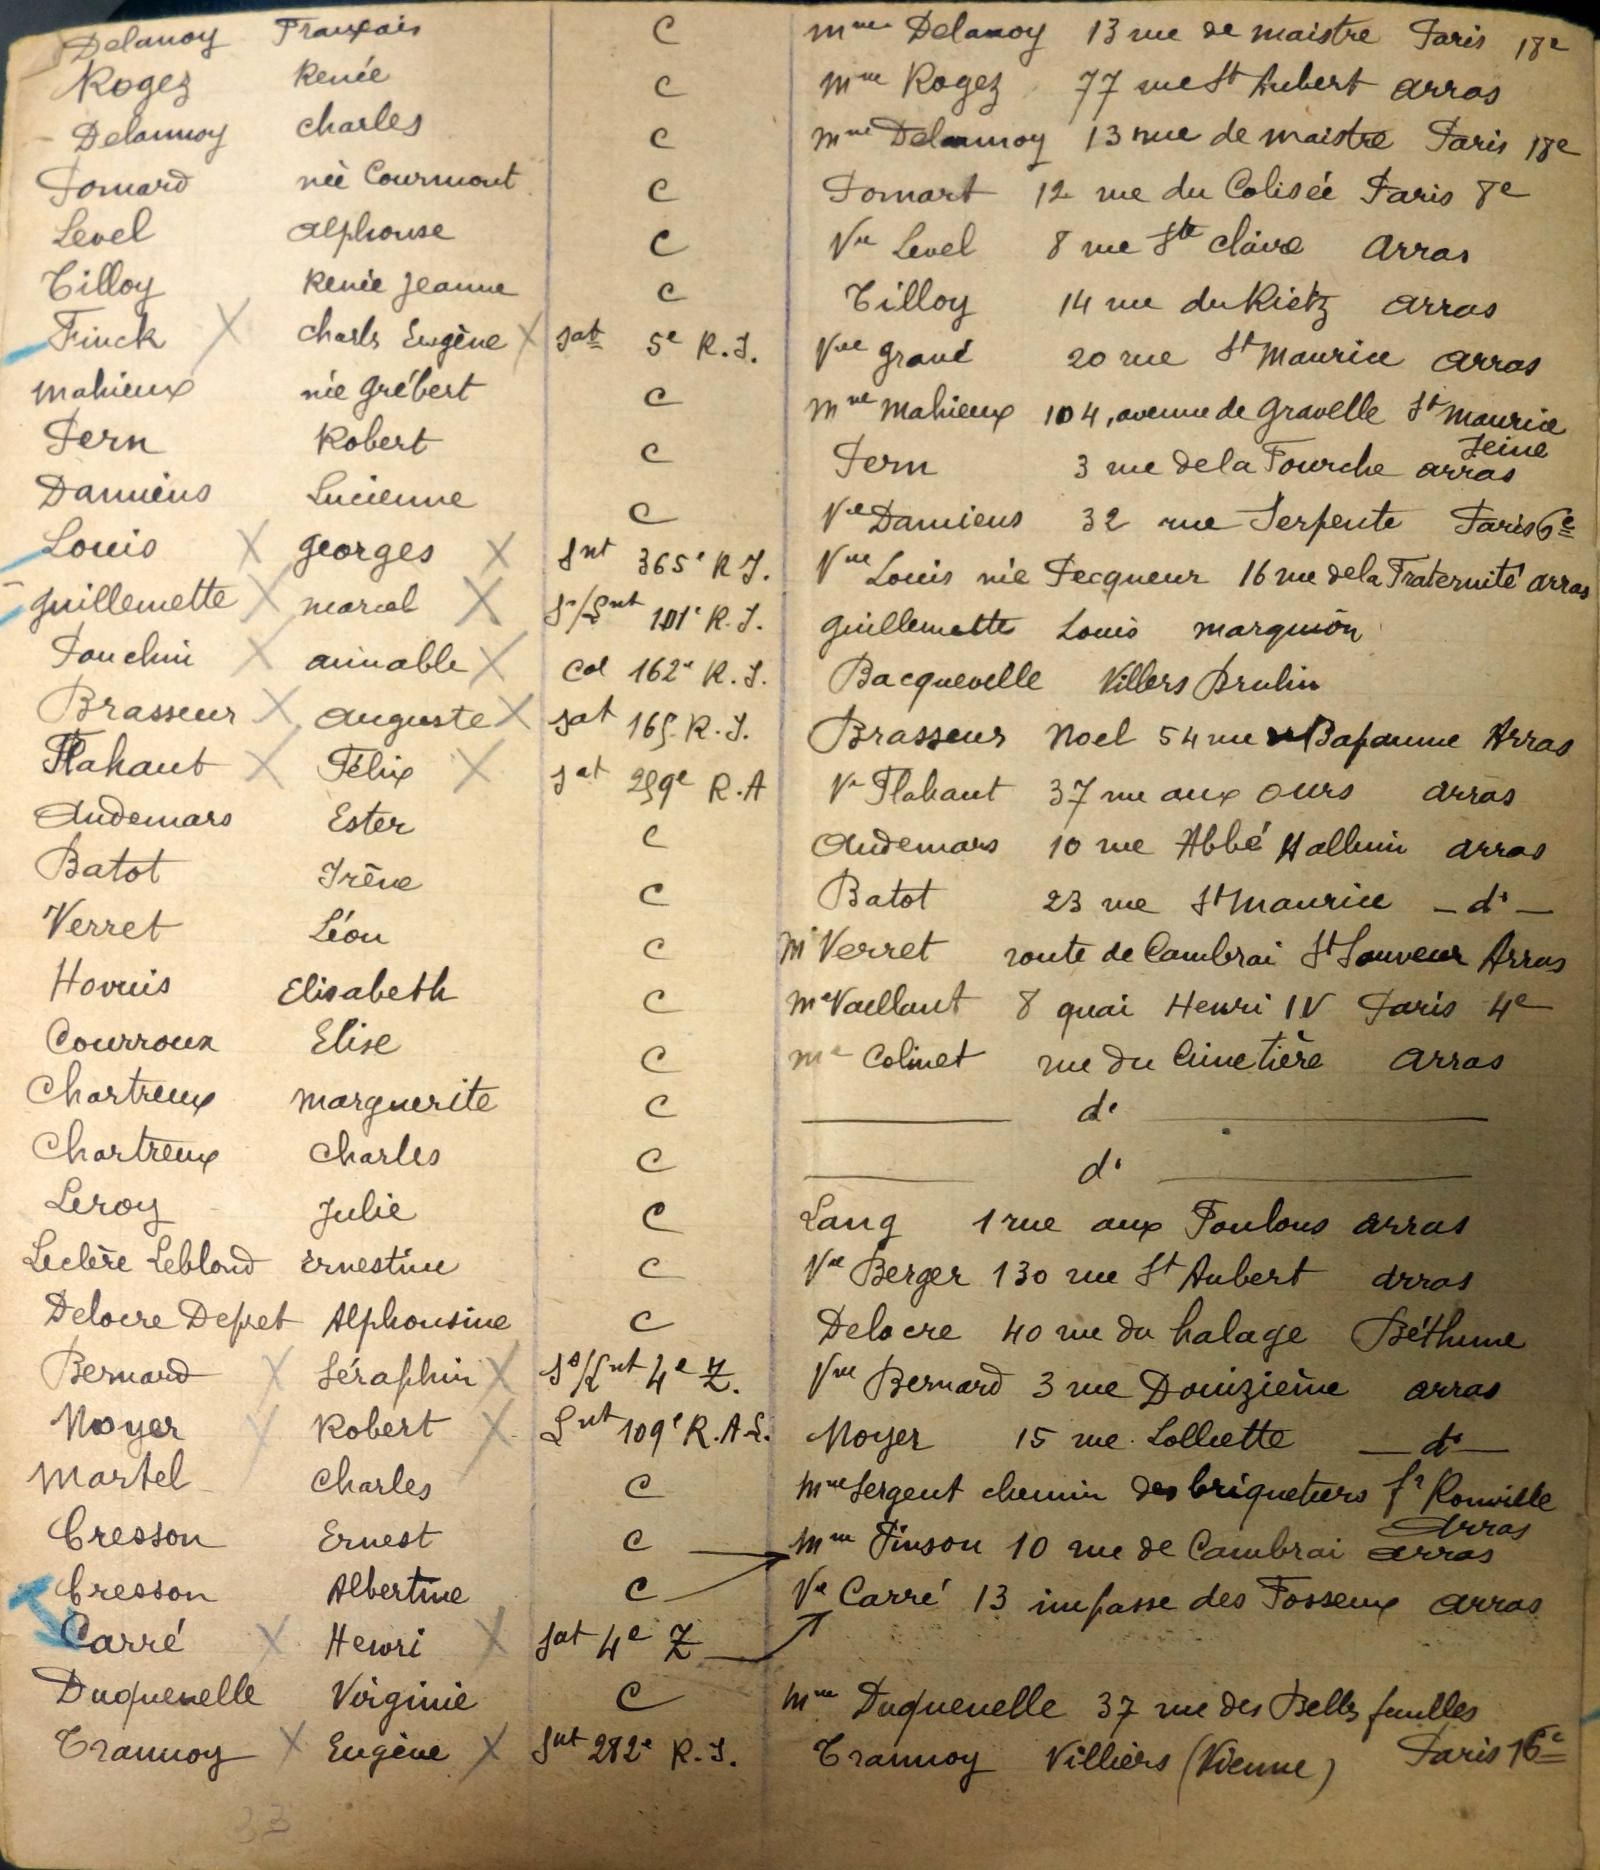 Delanoy Français C Mme Delanoy 13 rue de maistre Paris 18e
Rogez Renée C Mme Rogez 77 rue St Aubert arras
Delannoy charles C Mme Delannoy 13 rue de maistre Paris 18e
Pomard née Courmont C Pomart 12 rue du Colisée Paris 8e
Level alphonse C Vve Level 8 rue Ste claire Arras
Tilloy Renée Jeanne C Tilloy 14 rue du Rietz arras
Finck X charles Eugène X sat 5e R.I. Vve gravé 20 rue St Maurice arras
mahieux née grébert C Mme mahieux 104, avenue de gravelle St maurice
Seine
Pern Robert C Pern 3 rue de la Fourche arras
Damiens Lucienne C Ve Damiens 32 rue Serpente Paris 6e
Louis X georges X Snt 365e R.I. Vve Louis née Pecqueur 16 rue de la Fraternité arras
guillemette X marcel X S/Lnt 101e R.I. guillemette Louis marquion
Pouchin X aimable X Cal 162e R.I. Bacquevelle Villers Brulin
Brasseur X auguste X sat R.I. Brasseur Noel 54 rue Bapaume Arras
Flahaut X Félix X sat R.A Ve Flahaut 37 rue aux ours arras
Audemars Ester C Audemars 10 rue Abbé Halluin arras
Batot Irène C Batot 23 rue St Maurice — do —
Verret Léon C Mr Verret route de Cambrai St Sauveur Arras
Hovuis Elisabeth C Me Vaillant 8 quai Henri IV Paris 4e
Courroux Elise C Me Colinet rue du Cimetière arras
Chartreux Marguerite C — do —
Chartreux Charles C — do —
Leroy Julie C Lang 1 rue aux Foulons arras
Leclère Leblond Ernestine C Vve Berger 130 rue St Aubert arras
Delocre Depret Alphonsine C Delocre 40 rue du halage Béthune
Bernard X Séraphin X S/Lnt 4e Z. Vve Bernard 3 rue Douizième arras
Noyer X Robert X Lnt 109e R.A.L. Noyer 15 rue Lolliette — do —
Martel Charles C Mme Sergent chemin des briquetiers fg Ronville
Arras
Cresson Ernest C Mme Pinson 10 rue de Cambrai arras
Cresson Albertine C Ve Carré 13 impasse des Fosseux arras
Carré X Henri X sat 4e Z
Duquenelle Virginie C Mme Duquenelle 37 rue des Belles feuilles
Paris 16e
Trannoy X Eugène X Snt 282e R.I. Trannoy Villiers (Vienne)
33